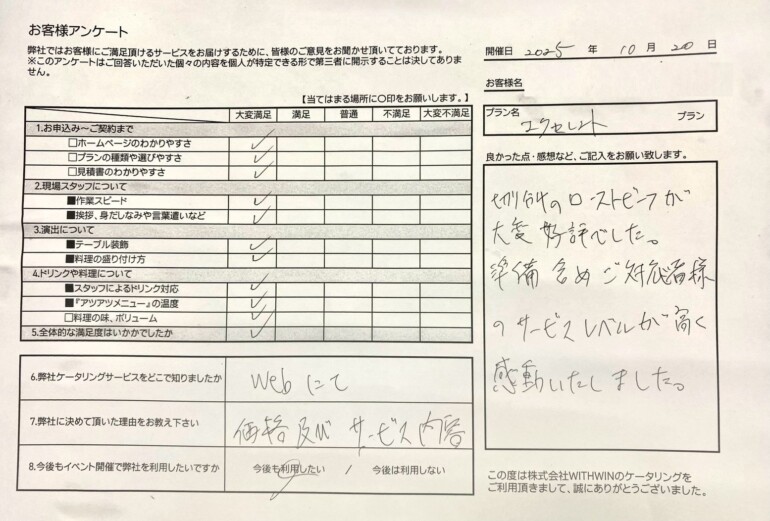 お客様アンケート
弊社ではお客様にご満足頂けるサービスをお届けするために、皆様のご意見をお聞かせ頂いております。
※このアンケートはご回答いただいた個々の内容を個人が特定できる形で第三者に開示することは決してありま
せん。
開催日 2025 年 10 月 20 日
お客様名
【当てはまる場所に〇印をお願いします。】
大変満足 満足 普通 不満足 大変不満足
1.お申込み〜ご契約まで ✓
□ホームページのわかりやすさ ✓
□プランの種類や選びやすさ ✓
□見積書のわかりやすさ ✓
2.現場スタッフについて
■作業スピード ✓
■挨拶、身だしなみや言葉遣いなど ✓
3.演出について
■テーブル装飾 ✓
■料理の盛り付け方 ✓
4.ドリンクや料理について
■スタッフによるドリンク対応 ✓
■『アツアツメニュー』の温度 ✓
□料理の味、ボリューム ✓
5.全体的な満足度はいかかでしたか ✓
プラン名 エクセレント プラン
良かった点・感想など、ご記入をお願い致します。
切り分けのローストビーフが
大変好評でした。
準備含めご対応者様
のサービスレベルが高く
感動いたしました。
6.弊社ケータリングサービスをどこで知りましたか Webにて
7.弊社に決めて頂いた理由をお教え下さい 価格及びサービス内容
8.今後もイベント開催で弊社を利用したいですか 今後も利用したい / 今後は利用しない
この度は株式会社WITHWINのケータリングを
ご利用頂きまして、誠にありがとうございました。